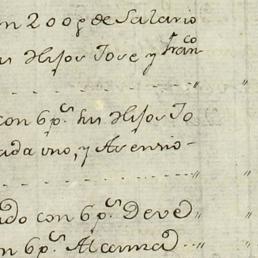 n 200 g de Salario
us Hijos Jose y Fran.co
con 6 p.s sus Hijos Jo
ada uno, y Avenio-
ado con 6 p.s Deve
n 6 p.s Alcanza